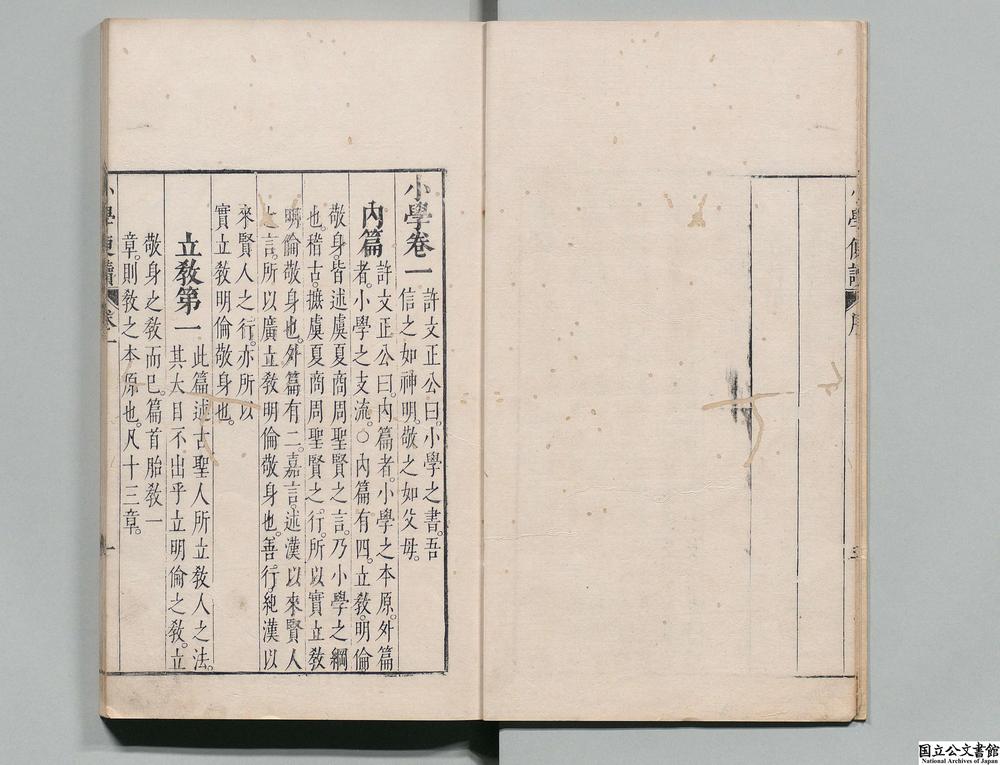 小學便讀 序
小學卷一
許文正公曰。小學之書。吾
信之如神明。敬之如父母。
內篇
許文正公曰。內篇者。小學之本原。外篇
者。小學之支流。○內篇有四。立敎。明倫
敬身。皆述虞夏商周聖賢之言。乃小學之綱
也。稽古。摭虞夏商周聖賢之行。所以實立敎
明倫敬身也。外篇有二。嘉言。述漢以來賢人
之言。所以廣立敎明倫敬身也。善行。紀漢以
來賢人之行。亦所以
實立敎明倫敬身也。
立敎第一
此篇述古聖人所立敎人之法。
其大目不出乎立明倫之敎。立
敬身之敎而已。篇首胎敎一
章。則敎之本原也。凡十三章。
小學便讀 卷一 一
国立公文書館
National Archives of Japan